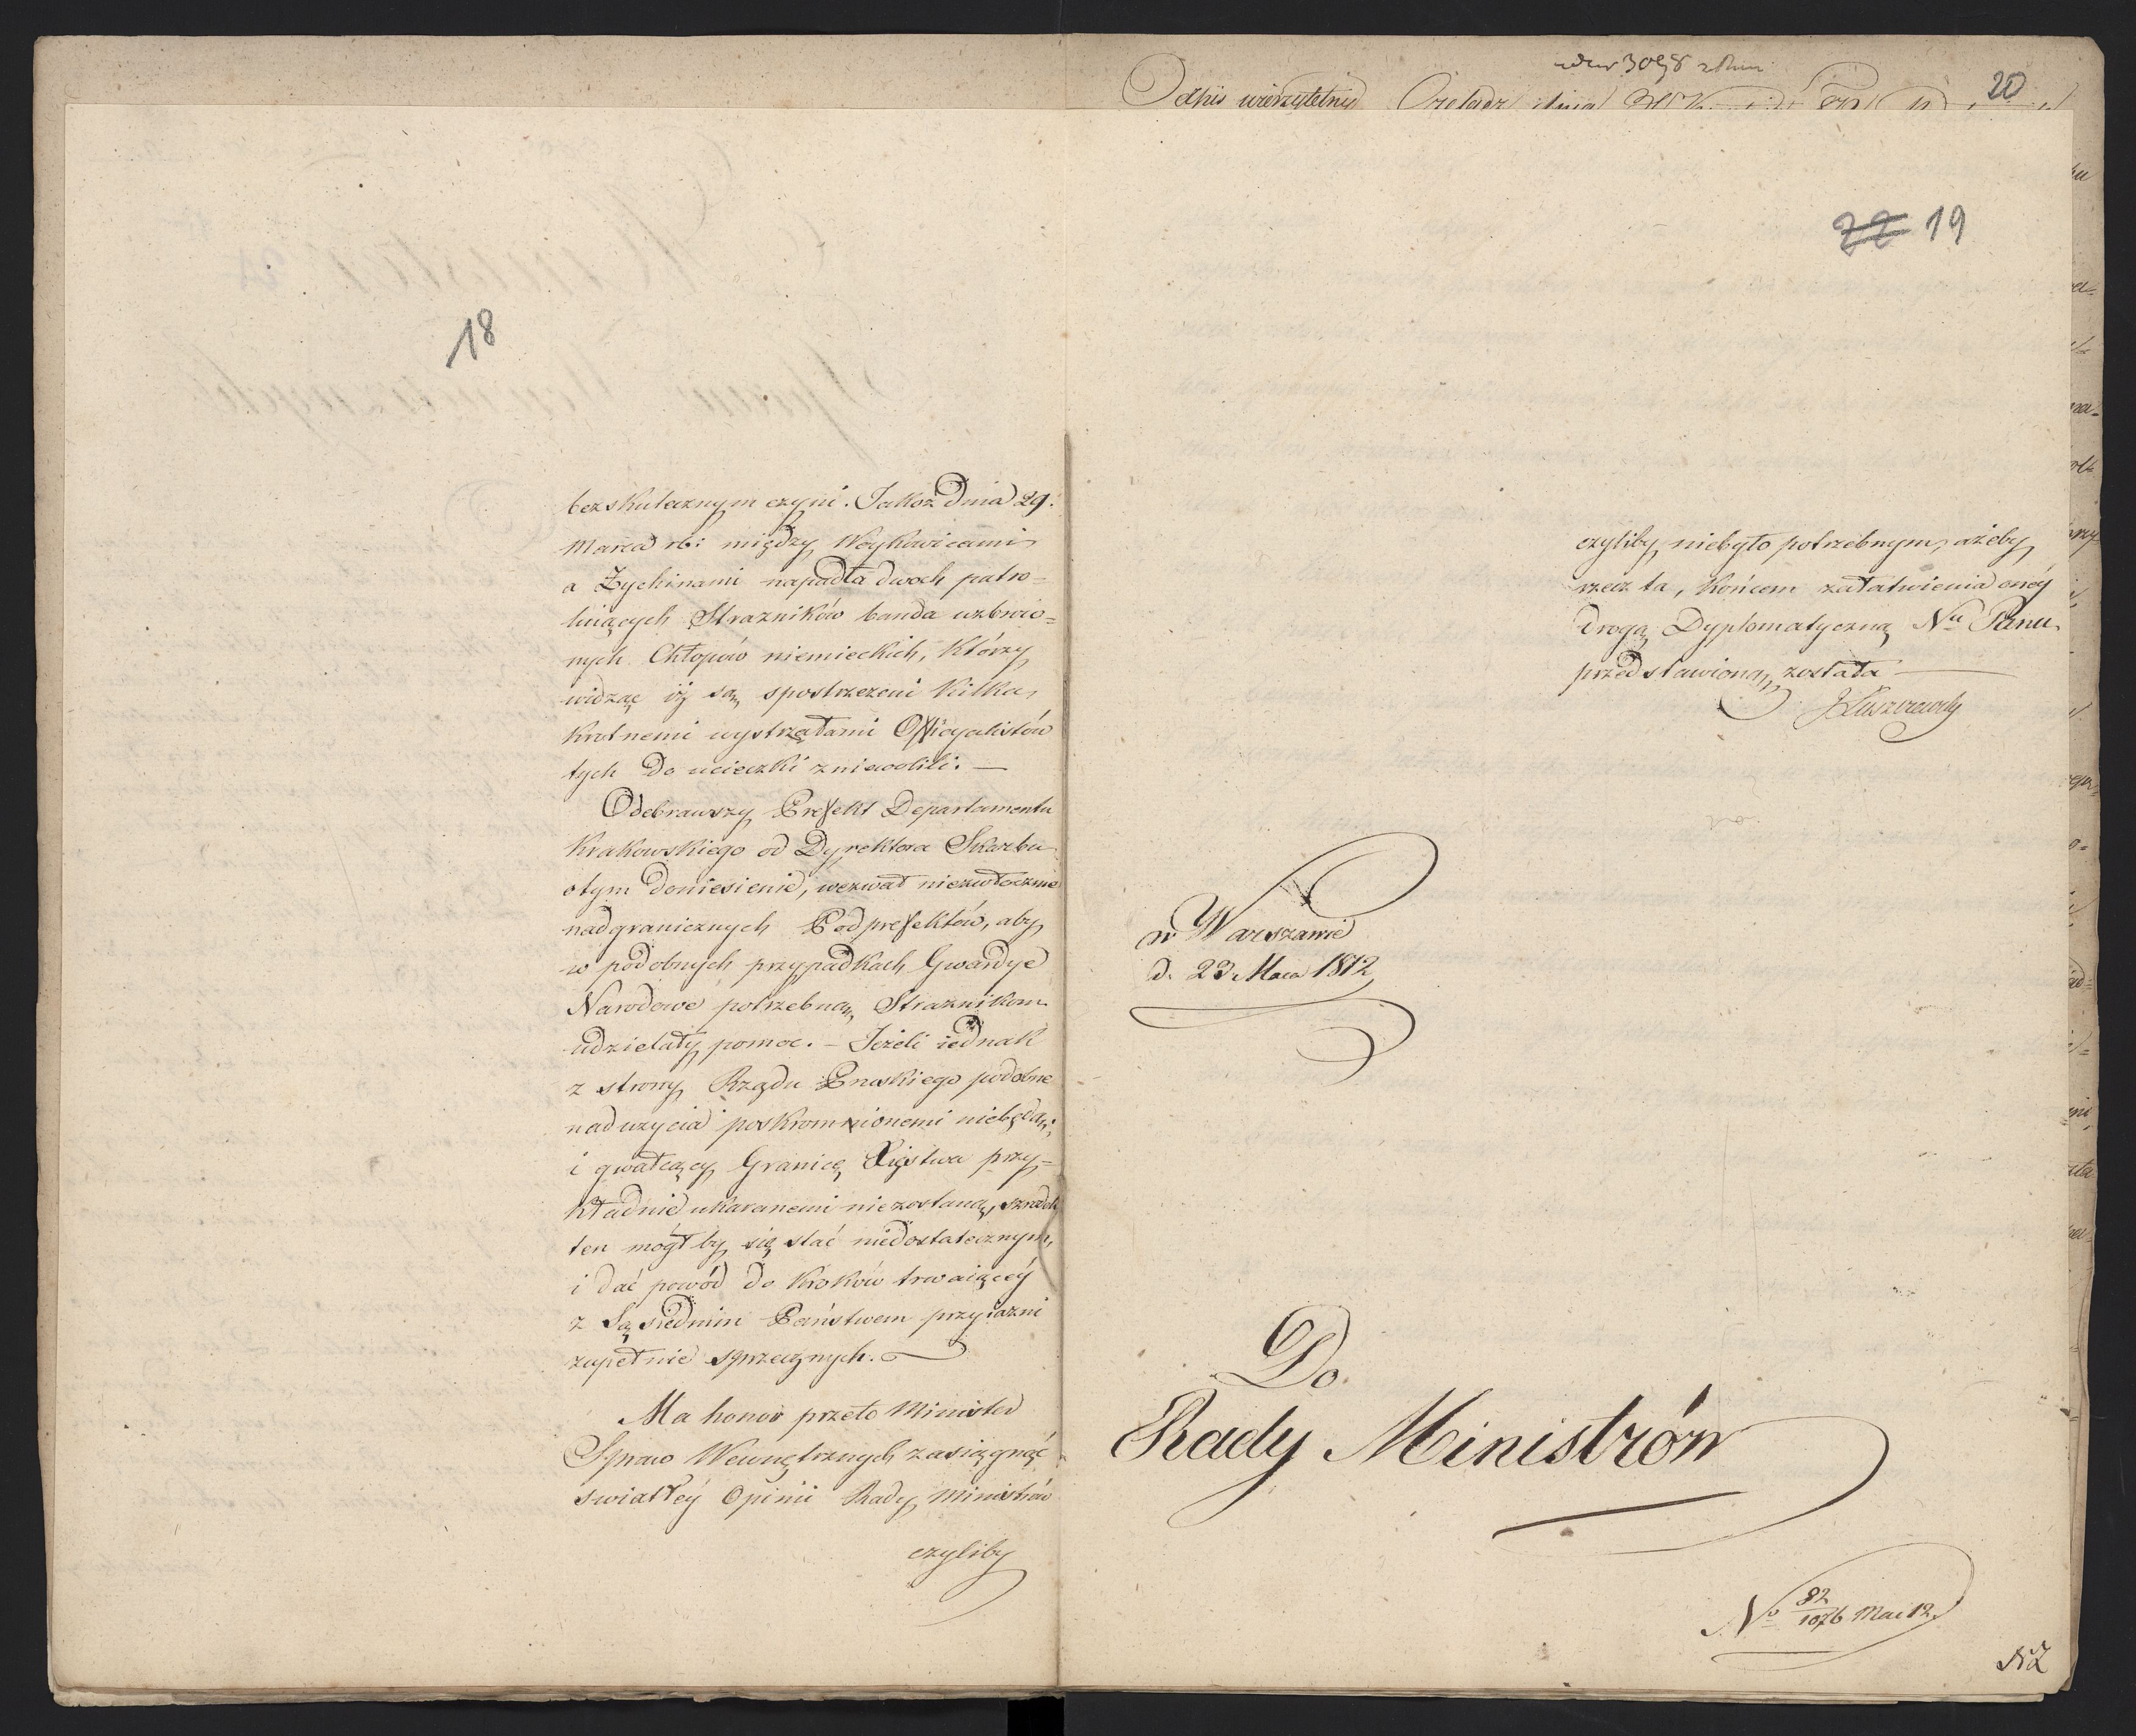 18
bezskutecznym czyni. Jakoż Dnia 29.
Marca rb: między Woykowicami
a Żychinami napadła dwoch patro=
luiących Strażników banda uzbroio=
nych Chłopów niemieckich, którzy
widząc iż są spostrzeżeni kilka,
krotnemi wystrzałami Officyalistów
tych do ucieczki zniewolili. —
Odebrawszy Prefekt Departamentu
Krakowskiego od Dyrektora Skarbu
otym doniesienie, wezwał niezwłocznie
nadgranicznych Podprefektów, aby
w podobnych przypadkach Gwardye
Narodowe potrzebną Strażnikom
udzielały pomoc. – Jeżeli iednak
z strony Rządu Pruskiego podobne
nadużycia poskromnionemi niebędą,
i gwałcący Granicę Xięstwa przy=
kładnie ukaranemi niezostaną, szrodek
ten mógłby się stać niedostatecznym,
i dać powód do kroków trwaiącéy
z Sąsiednim Państwem przyiaźni
zupełnie sprzecznych.
Ma honor przeto Minister
Spraw Wewnętrznych zasięgnąć
swiatłéy Opinii Rady Ministrów
czyliby
Odpis wierzytelny
20
22 19
czyliby niebyło potrzebnym, ażeby
rzecz ta, końcem załatwienia onéy
drogą Dyplomatyczną Nu Panu
przedstawioną została —
w Warszawie
d. 23 Maia 1812
Do
Rady Ministrów
No 82/1076 Mai 12.